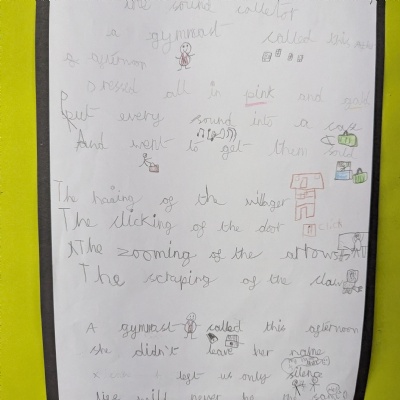 the sound collector
a gymnast called this
a afternoon
Dressed all in pink and gold
Put every sound into a case
And went to get them sold
The of the villager
The clicking of the dor click
The zooming of the arrows
The scraping of the
A gymnast called this afternoon
she didn't leave her name
left us only silence
will never be the same